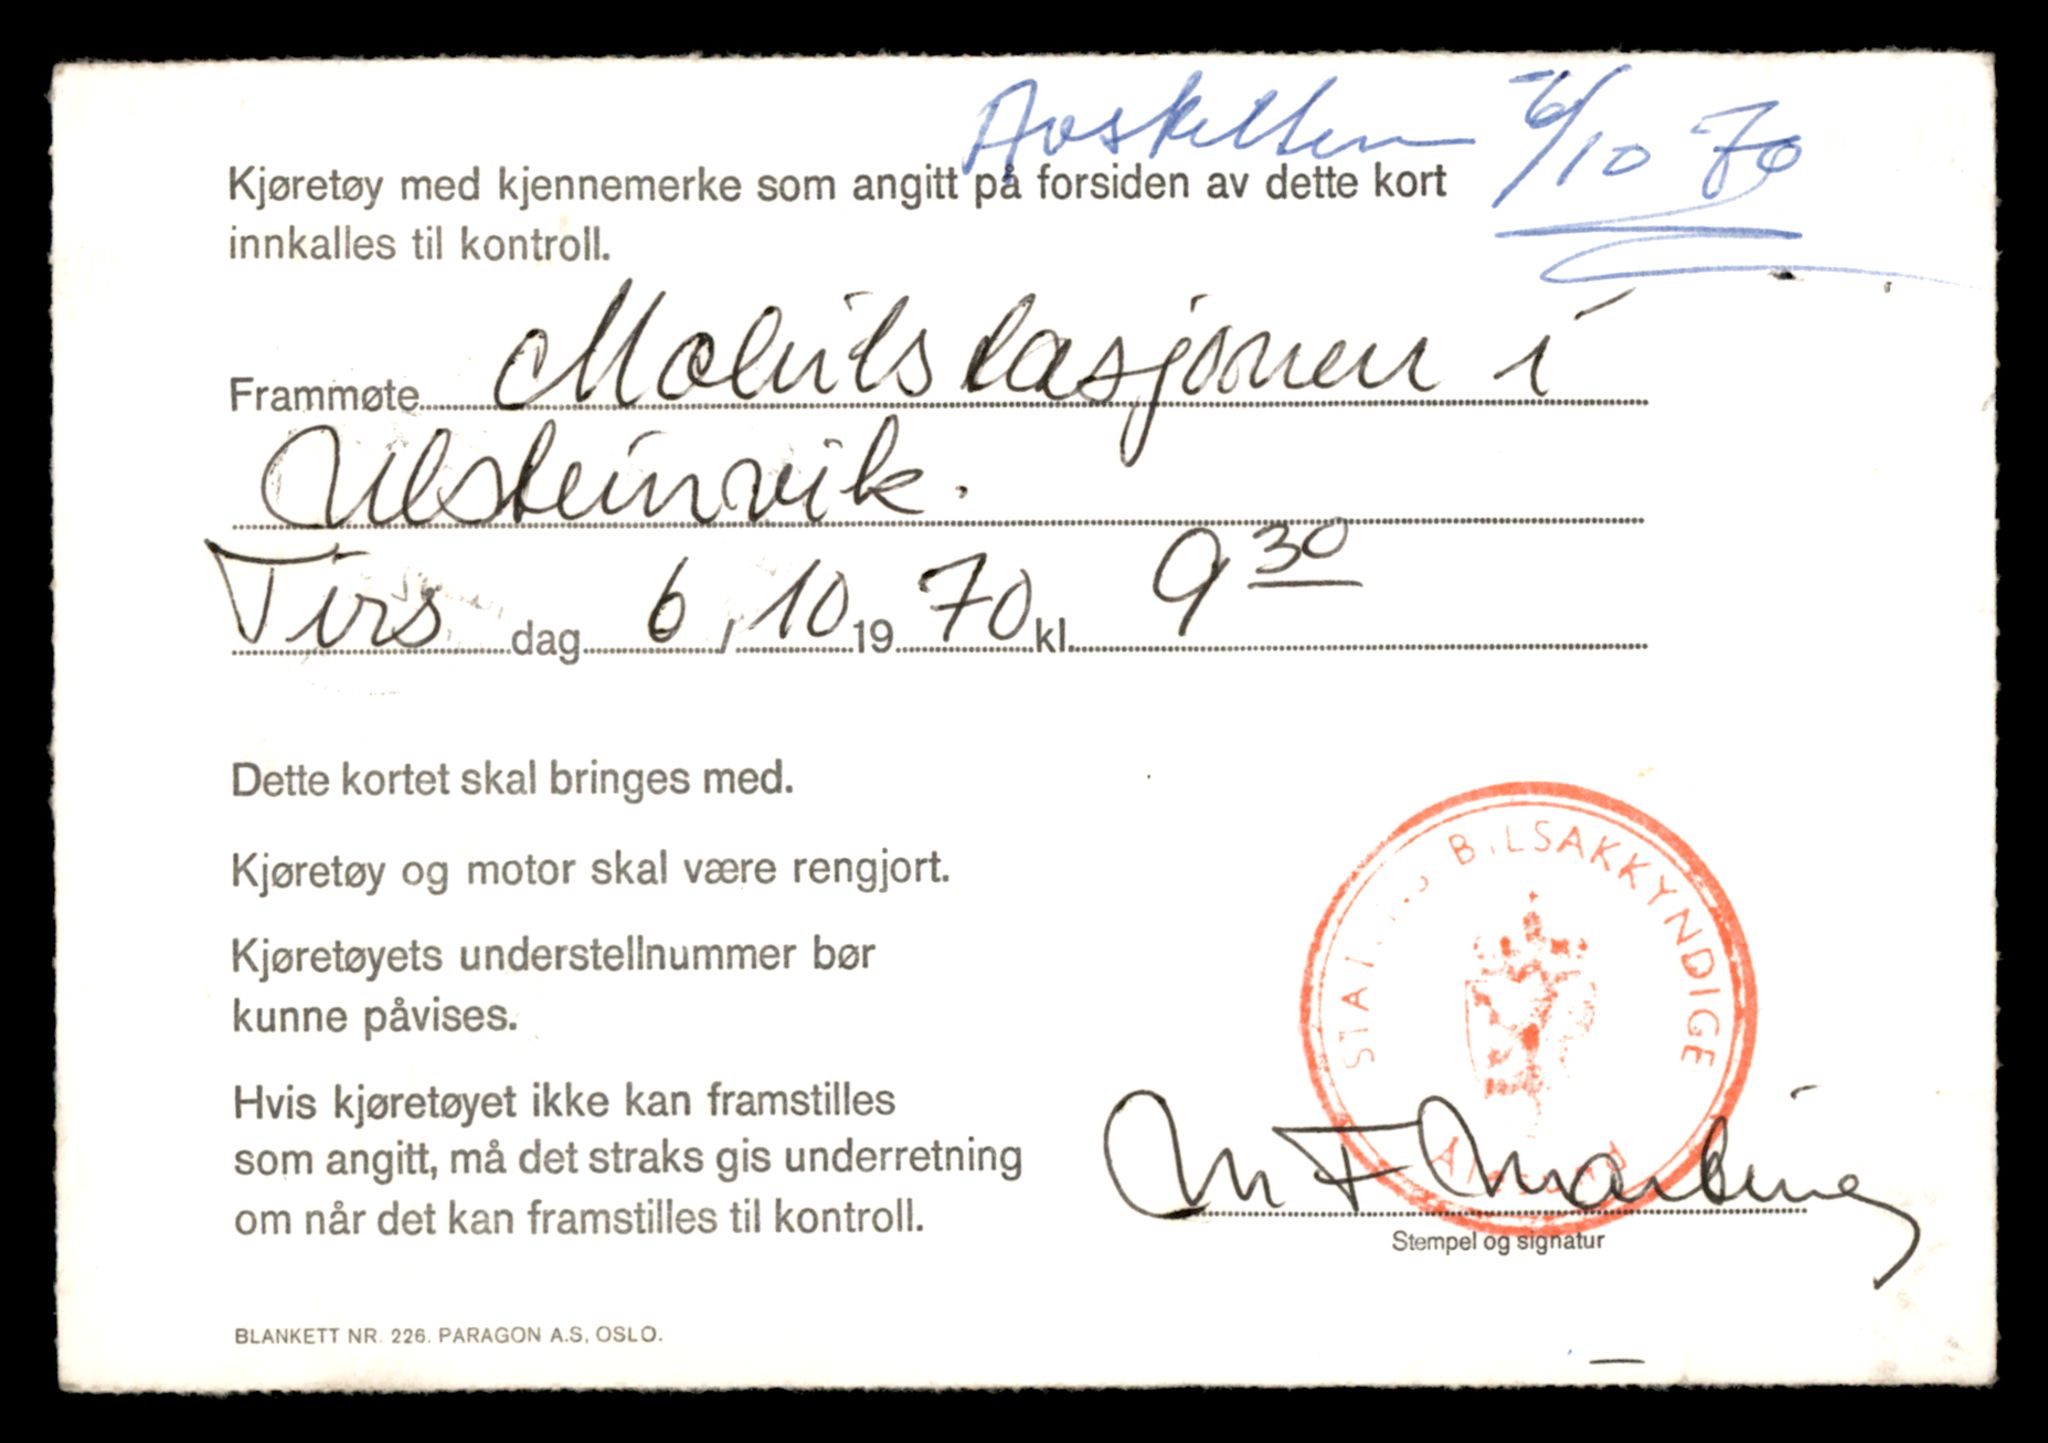 Avskiltten 6/10 70
Kjøretøy med kjennemerke som angitt på forsiden av dette kort
innkalles til kontroll.
Frammøte Mobilstasjonen i
Ulsteinvik.
Tirs dag 6 / 10 19 70 kl. 9 30
Dette kortet skal bringes med.
Kjøretøy og motor skal være rengjort.
Kjøretøyets understellnummer bør
kunne påvises.
Hvis kjøretøyet ikke kan framstilles
som angitt, må det straks gis underretning
om når det kan framstilles til kontroll.
BILSAKKYNDIGE
Stempel og signatur
BLANKETT NR. 226. PARAGON A.S, OSLO.